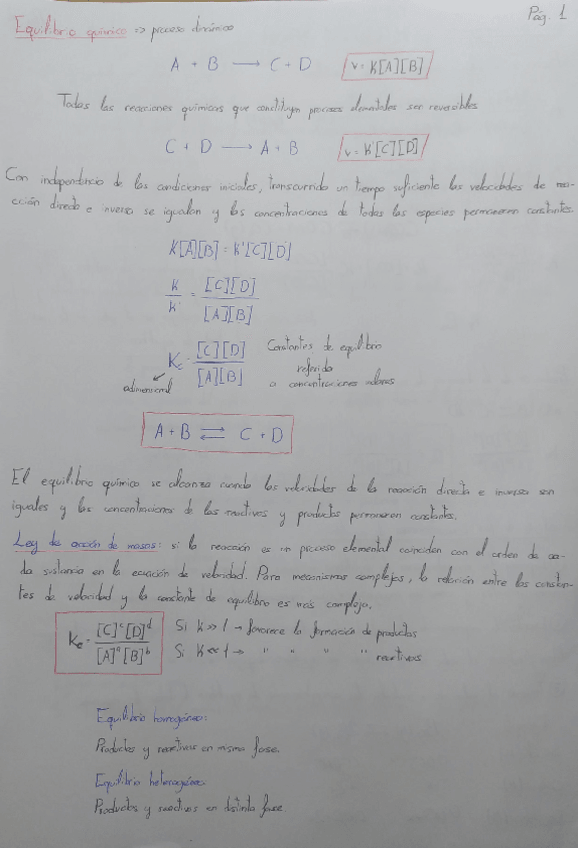 Pág. 1
Equilibrio químico => proceso dinámico
A + B ⟶ C + D   v = K[A][B]
Todas las reacciones químicas que constituyen procesos elementales ser reversibles
C + D ⟶ A + B   v = K'[C][D]
Con independencia de las condiciones iniciales, transcurrido un tiempo suficiente las velocidades de rea-
cción directa e inversa se igualan y las concentraciones de todas las especies permanecen constantes.
K[A][B] = K'[C][D]
K/K' = [C][D]/[A][B]
Kc = [C][D]/[A][B]   Constantes de equilibrio
referida
adimensional   a concentraciones molares
A + B ⇌ C + D
El equilibrio químico se alcanza cuando las velocidades de la reacción directa e inversa son
iguales y las concentraciones de los reactivos y productos permanecen constantes.
Ley de acción de masas: si la reacción es un proceso elemental coinciden con el orden de ca-
da sustancia en la ecuación de velocidad. Para mecanismos complejos, la relación entre las constan-
tes de velocidad y la constante de equilibrio es más compleja.
Kc = [C]^c[D]^d/[A]^a[B]^b   Si K >> 1 → favorece la formación de productos
Si K << 1 → " " " " reactivos
Equilibrio homogéneo:
Productos y reactivos en misma fase.
Equilibrio heterogéneo:
Productos y reactivos en distinta fase